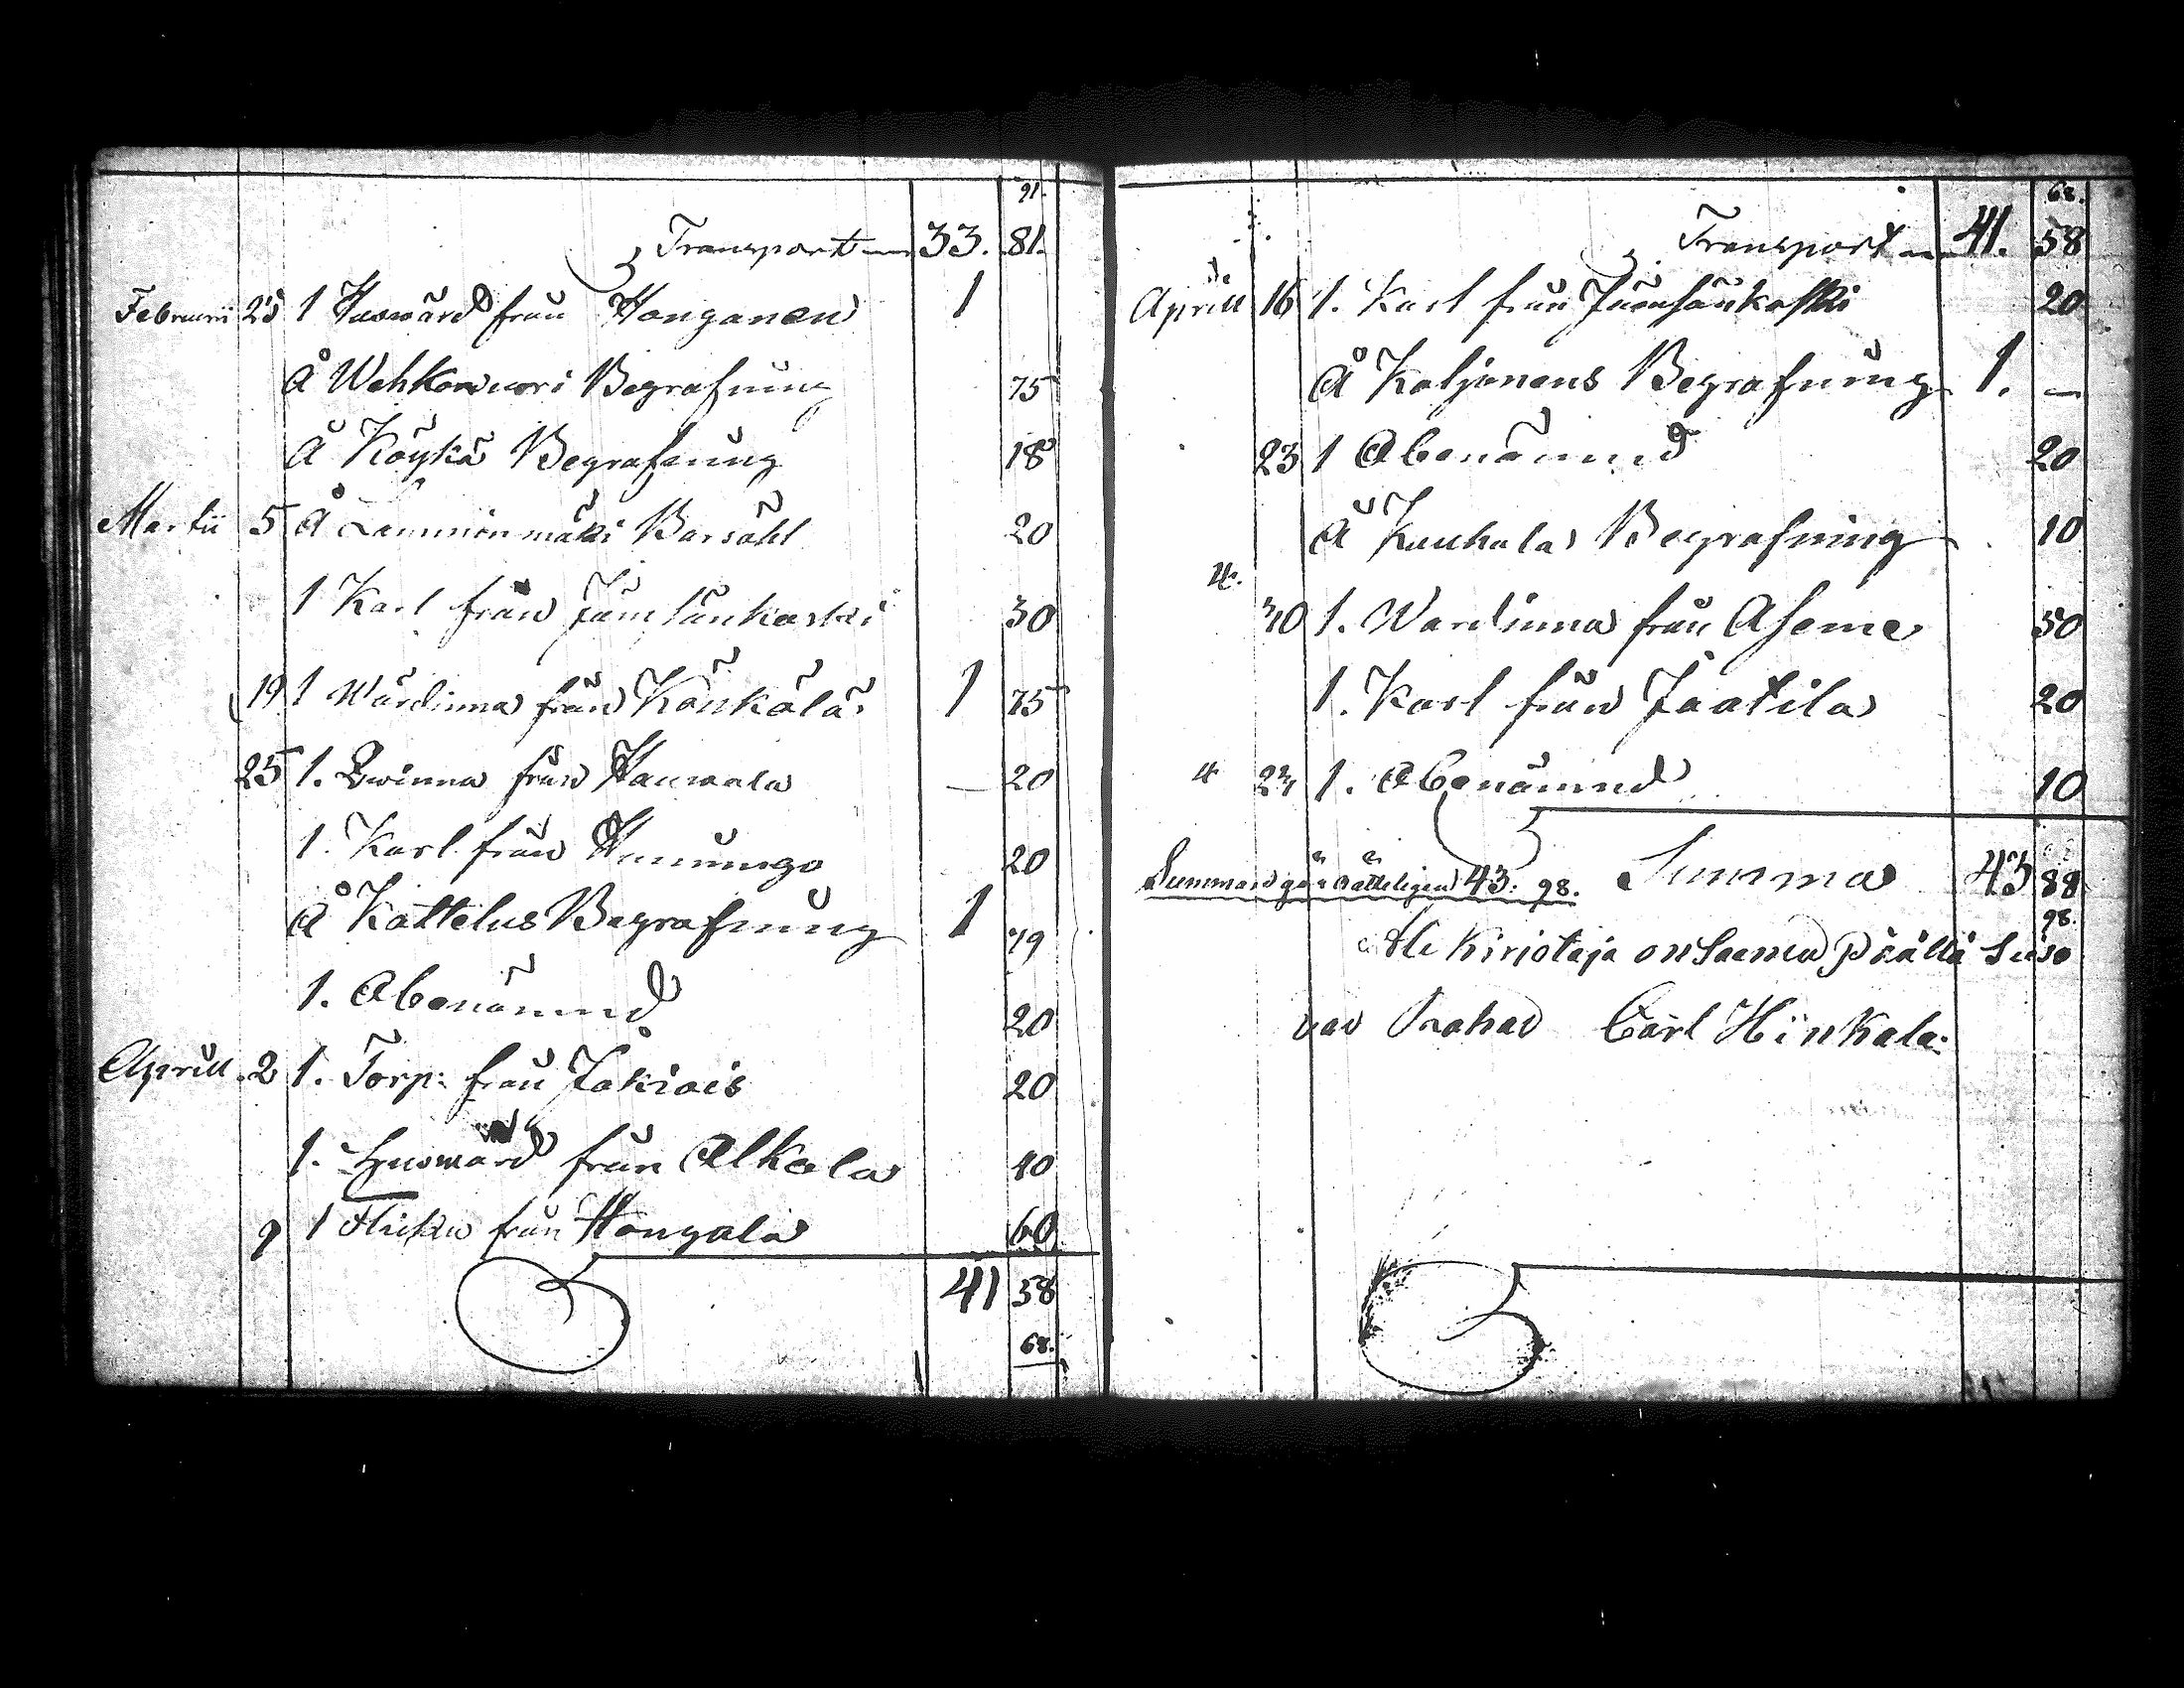 91.
Transport 33. 81.
Februarii 23 1 Huswärd från Honganen 1
Å Wehkawuori Begrafning 75
Å Köykä Begrafning 18
Martii 5 Å Lamminmäki Barsöhl 20
1 Karl från Jämsänkoski 30
19 1 Wärdinna från Könkölä 1 75
25 1. Qwinna från Haurala 20
1. Karl från 20
Å Kattelus Begrafning 1 79
1. Obenämnd 20
Aprill 2 1. Torp: från Jokiois 20
1. Huswärd från Alkula 40
9 1 Flicka från Hongola 60
41 58
68.
68.
Transport 41. 58
Aprill 16 1. Karl från Jämsänkoski 20
Å Koljonens Begrafning 1. —
23 1 Obenämnd 20
Å Kauhala Begrafning 10
30 1. Wärdinna från Aseme 50
1. Karl från Jaatila 20
1. Obenämnd 10
Summan gör rätteligen 43: 98. Summa 43 88
98.
Ale Kirjotaja on Saanu päältä Seiso
van Rahan Carl Hinkala: